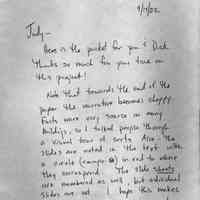 9/4/02
Judy—
Here is the packet for you & Dick
thanks so much for your time on
this project!
Note that towards the end of the
paper the narrative becomes choppy.
Facts were very scarce on many
buildings, so I talked people through
a visual tour of sorts. Also - the
slides are noted in the text with
a circle (example) in red to where
they correspond. The slide sheets
are numbered as well, but individual
slides are not. I hope this makes